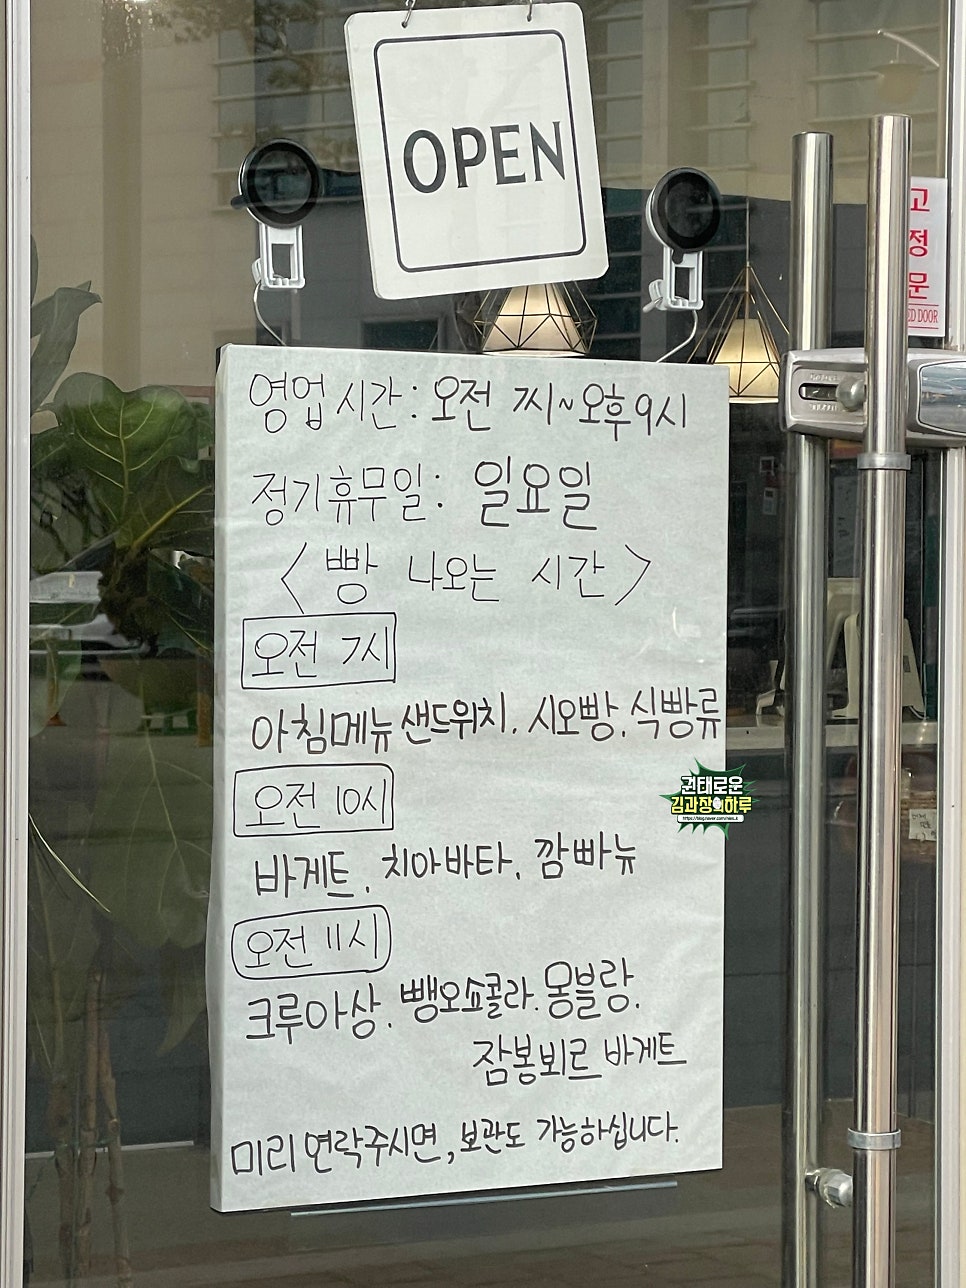 OPEN
고
정
문
ED DOOR
영업시간: 오전 7시~오후9시
정기휴무일: 일요일
<빵 나오는 시간>
오전 7시
아침메뉴 샌드위치. 시오빵. 식빵류
권태로운
김과장의하루
오전 10시
바게트. 치아바타. 깜빠뉴
오전 11시
크루아상. 뺑오쇼콜라. 몽블랑.
잠봉뵈르 바게트
미리 연락주시면, 보관도 가능하십니다.